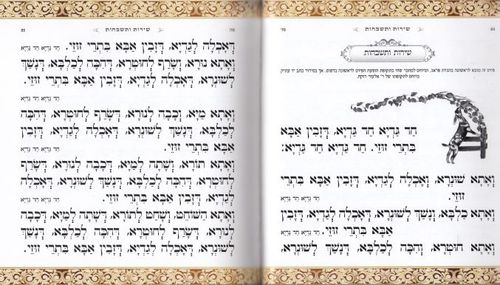 שירות ותשבחות
שירות ותשבחות
חַד גַּדְיָא חַד גַּדְיָא, דְּזַבִּין אַבָּא
בִּתְרֵי זוּזֵי. חַד גַּדְיָא חַד גַּדְיָא:
וְאָתָא שׁוּנְרָא, וְאָכְלָה לְגַדְיָא, דְּזַבִּין אַבָּא בִּתְרֵי
זוּזֵי. חַד גַּדְיָא חַד גַּדְיָא
וְאָתָא כַלְבָּא, וְנָשַׁךְ לְשׁוּנְרָא, דְּאָכְלָה לְגַדְיָא, דְּזַבִּין
אַבָּא בִּתְרֵי זוּזֵי. חַד גַּדְיָא חַד גַּדְיָא
וְאָתָא חוּטְרָא, וְהִכָּה לְכַלְבָּא, דְּנָשַׁךְ לְשׁוּנְרָא,
שירות ותשבחות
דְּאָכְלָה לְגַדְיָא, דְּזַבִּין אַבָּא בִּתְרֵי זוּזֵי.
חַד גַּדְיָא חַד גַּדְיָא
וְאָתָא נוּרָא, וְשָׂרַף לְחוּטְרָא, דְּהִכָּה לְכַלְבָּא, דְּנָשַׁךְ
לְשׁוּנְרָא, דְּאָכְלָה לְגַדְיָא, דְּזַבִּין אַבָּא בִּתְרֵי זוּזֵי.
חַד גַּדְיָא חַד גַּדְיָא
וְאָתָא מַיָּא, וְכָבָה לְנוּרָא, דְּשָׂרַף לְחוּטְרָא, דְּהִכָּה
לְכַלְבָּא, דְּנָשַׁךְ לְשׁוּנְרָא, דְּאָכְלָה לְגַדְיָא, דְּזַבִּין
אַבָּא בִּתְרֵי זוּזֵי. חַד גַּדְיָא חַד גַּדְיָא
וְאָתָא תוֹרָא, וְשָׁתָה לְמַיָּא, דְּכָבָה לְנוּרָא, דְּשָׂרַף
לְחוּטְרָא, דְּהִכָּה לְכַלְבָּא, דְּנָשַׁךְ לְשׁוּנְרָא, דְּאָכְלָה
לְגַדְיָא, דְּזַבִּין אַבָּא בִּתְרֵי זוּזֵי. חַד גַּדְיָא חַד גַּדְיָא
וְאָתָא הַשּׁוֹחֵט, וְשָׁחַט לְתוֹרָא, דְּשָׁתָה לְמַיָּא, דְּכָבָה
לְנוּרָא, דְּשָׂרַף לְחוּטְרָא, דְּהִכָּה לְכַלְבָּא, דְּנָשַׁךְ
לְשׁוּנְרָא, דְּאָכְלָה לְגַדְיָא, דְּזַבִּין אַבָּא בִּתְרֵי זוּזֵי.
חַד גַּדְיָא חַד גַּדְיָא